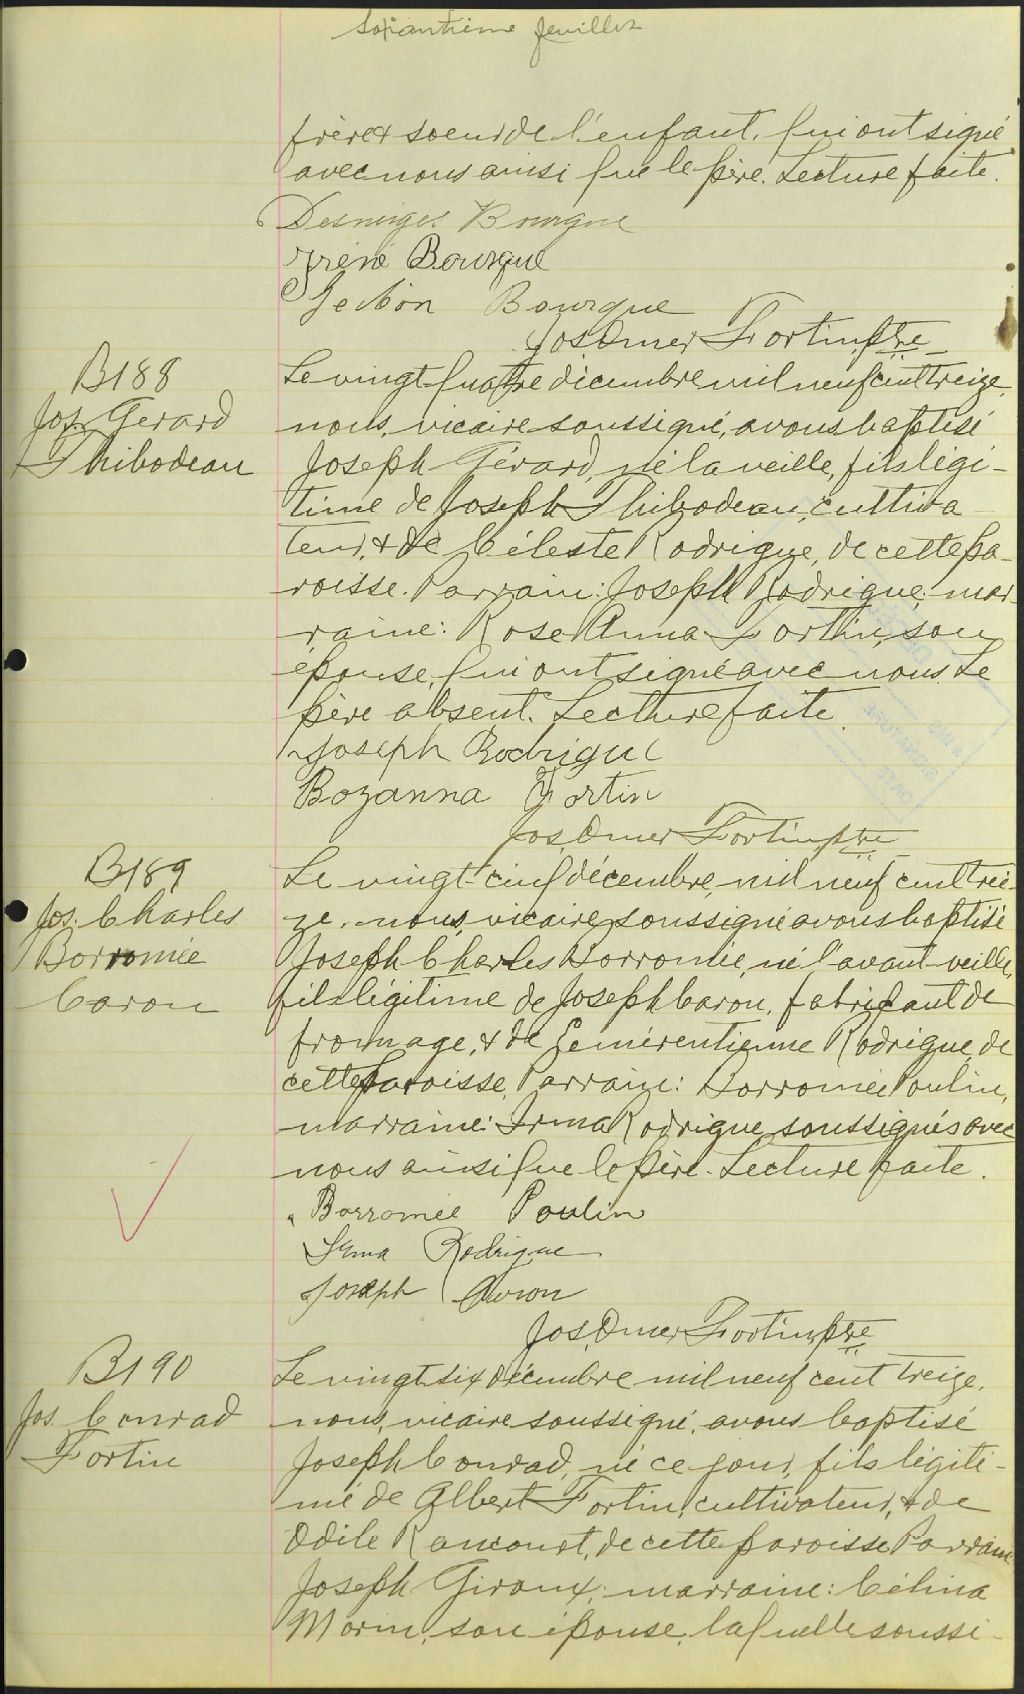 Soixantième feuillet
frère & soeur de l'enfant, qui ont signé
avec nous ainsi que le père. Lecture faite.
Bourque
Iréné Bourque
Gédéon Bourque
Jos Omer Fortin, ptre
B188
Jos. Gerard
Thibodeau
Le vingt-quatre décembre mil neuf cent treize,
nous, vicaire soussigné, avons baptisé
Joseph Gérard, né la veille, fils légi-
time de Joseph Thibodeau, cultiva-
teur, & de Céleste Rodrigue, de cette pa-
roisse. Parrain: Joseph Rodrigue; mar-
raine: Rose Anna Fortin, son
épouse, qui ont signé avec nous. Le
père absent. Lecture faite.
Joseph Rodrigue
Rozanna Fortin
Jos Omer Fortin, ptre
B189
Jos. Charles
Borromée
Caron
Le vingt-cinq décembre, mil neuf cent trei-
ze, nous, vicaire soussigné avons baptisé
Joseph Charles Borromée, né l'avant-veille,
fils légitime de Joseph Caron, fabricant de
fromage, & de Eemérentienne Rodrigue, de
cette paroisse. Parrain: Borromée Poulin,
marraine: Irma Rodrigue soussignés avec
nous ainsi que le père. Lecture faite.
Borromée Poulin
Irma Rodrigue
Joseph Caron
Jos. Omer Fortin, ptre
B190
Jos. Conrad
Fortin
Le vingt-six décembre mil neuf cent treize,
nous, vicaire soussigné, avons baptisé
Joseph Conrad, né ce jour, fils légiti-
me de Albert Fortin, cultivateur, & de
Odile Rancourt, de cette paroisse. Parrain
Joseph Giroux; marraine: Célina
Morin, son épouse, laquelle soussi-